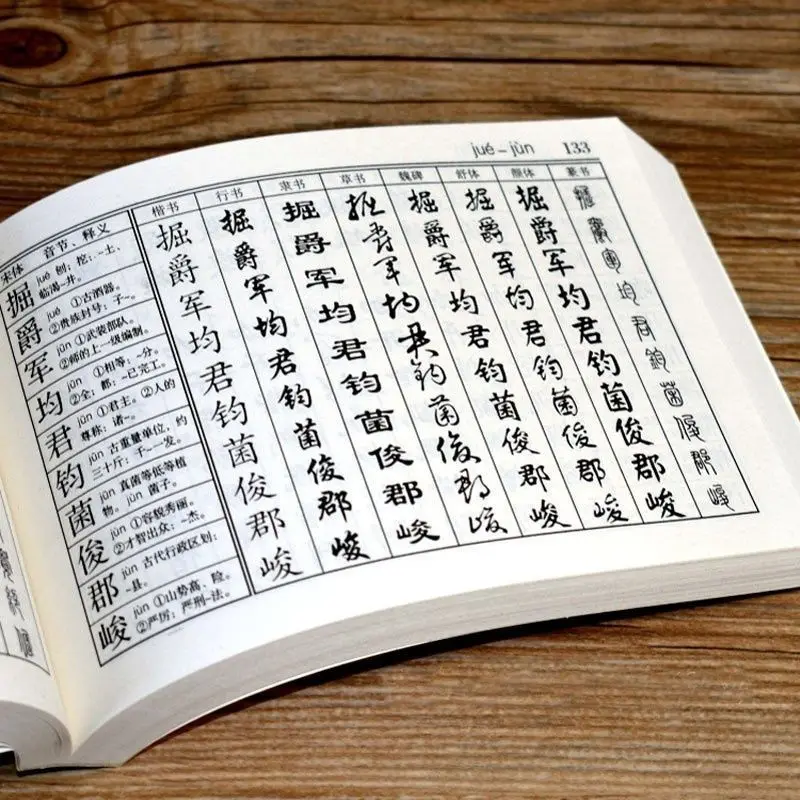 jué – jùn 133
宋体 音节、释义 楷书 行书 隶书 草书 魏碑 舒体 颜体 篆书
掘 jué 刨;挖:~土、
临渴~井。
掘 掘 掘 掘 掘 掘 掘 掘
爵 jué ①古酒器。
②贵族封号:子~。
爵 爵 爵 爵 爵 爵 爵 爵
军 jūn ①武装部队。
②师的上一级编制。
军 军 军 军 军 军 军 军
均 jūn ①相等:~分。
②全;都:~已完工。
均 均 均 均 均 均 均 均
君 jūn ①君主。②人的
尊称:诸~。
君 君 君 君 君 君 君 君
钧 jūn 古重量单位,约
三十斤:千~一发。
钧 钧 钧 钧 钧 钧 钧 钧
菌 jūn 真菌等低等植
物。jùn 菌子。
菌 菌 菌 菌 菌 菌 菌 菌
俊 jùn ①容貌秀丽。
②才智出众:~杰。
俊 俊 俊 俊 俊 俊 俊 俊
郡 jùn 古代行政区划:
~县。
郡 郡 郡 郡 郡 郡 郡 郡
峻 jùn ①山势高、险。
②严厉:严刑~法。
峻 峻 峻 峻 峻 峻 峻 峻